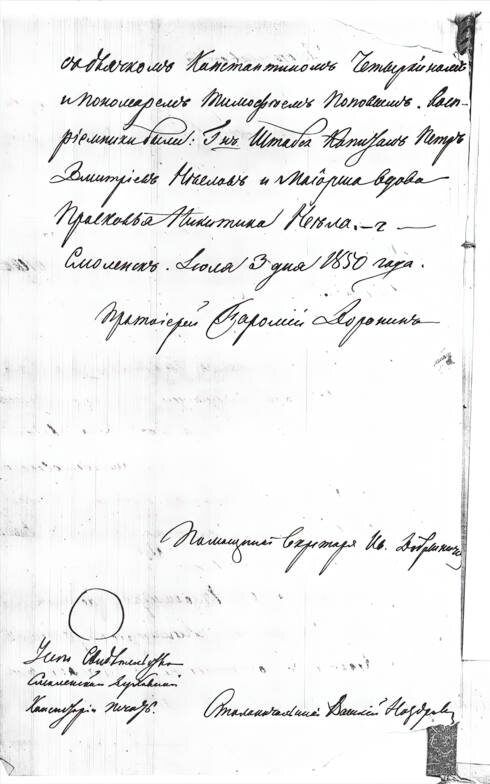 съ дьячкомъ Константиномъ Четвергинскимъ
и пономаремъ Тимофѣемъ Поповымъ. Восп-
рiемники были: Г нъ Штабсъ Капитанъ Петръ
Дмитрiевъ и Маiорша вдова
Прасковья Никитина
Смоленскъ. Iюля 3 дня 1850 года.
Протоiерей Воронинъ
Помощникъ Секретаря Ив.
Свидѣтельство
Смоленской Духовной
Консисторiи Печать.
Столоначальникъ Василiй